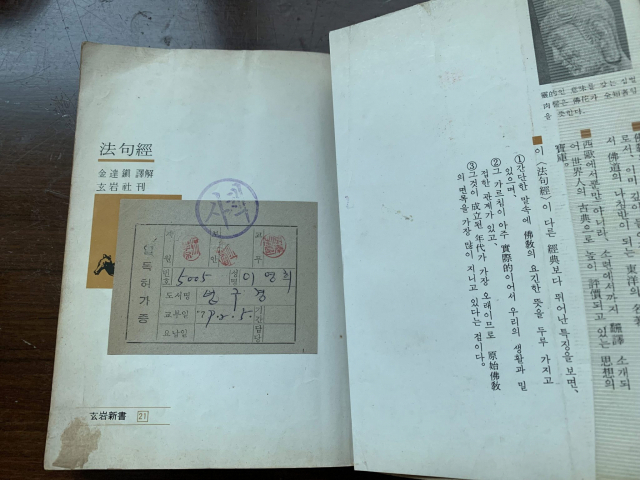 法句經
金達鎭 譯解
玄岩社 刊
사
열독허가증
번호 5005 성명 이
도서명 법구경
교부일 '79.2.5.
요납일
玄岩新書 21
을
뜻한다.
西歐에서뿐만 아니라, 소련에서까지 飜譯 소개되
어 世界人의 古典으로 높이 評價되고 있는 思想의
寶庫.
이 〈法句經〉이 다른 經典보다 뛰어난 특징을 보면,
①간단한 말속에 佛敎의 요긴한 뜻을 두루 가지고
있으며,
②그 가르치이 아주 實際的이어서 우리의 생활과 밀
접한 관계가 있고,
③그것이 成立된 年代가 가장 오래이므로 原始佛敎
의 면목을 가장 많이 지니고 있다는 점이다.